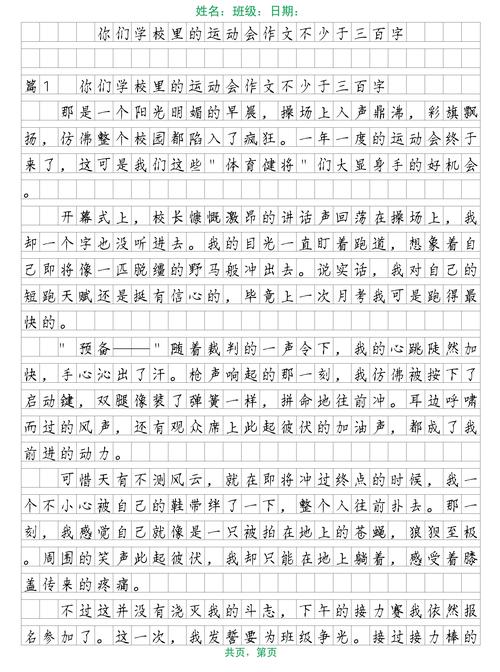 姓名：班级：日期：
你们学校里的运动会作文不少于三百字
篇1 你们学校里的运动会作文不少于三百字
那是一个阳光明媚的早晨，操场上人声鼎沸，彩旗飘
扬，仿佛整个校园都陷入了疯狂。一年一度的运动会终于
来了，这可是我们这些"体育健将"们大显身手的好机会
。
开幕式上，校长慷慨激昂的讲话声回荡在操场上，我
却一个字也没听进去。我的目光一直盯着跑道，想象着自
己即将像一匹脱缰的野马般冲出去。说实话，我对自己的
短跑天赋还是挺有信心的，毕竟上一次月考我可是跑得最
快的。
"预备——"随着裁判的一声令下，我的心跳陡然加
快，手心沁出了汗。枪声响起的那一刻，我仿佛被按下了
启动键，双腿像装了弹簧一样，拼命地往前冲。耳边呼啸
而过的风声，还有观众席上此起彼伏的加油声，都成了我
前进的动力。
可惜天有不测风云，就在即将冲过终点的时候，我一
个不小心被自己的鞋带绊了一下，整个人往前扑去。那一
刻，我感觉自己就像是一只被拍在地上的苍蝇，狼狈至极
。周围的笑声此起彼伏，我却只能在地上躺着，感受着膝
盖传来的疼痛。
不过这并没有浇灭我的斗志，下午的接力赛我依然报
名参加了。这一次，我发誓要为班级争光。接过接力棒的
共页，第页